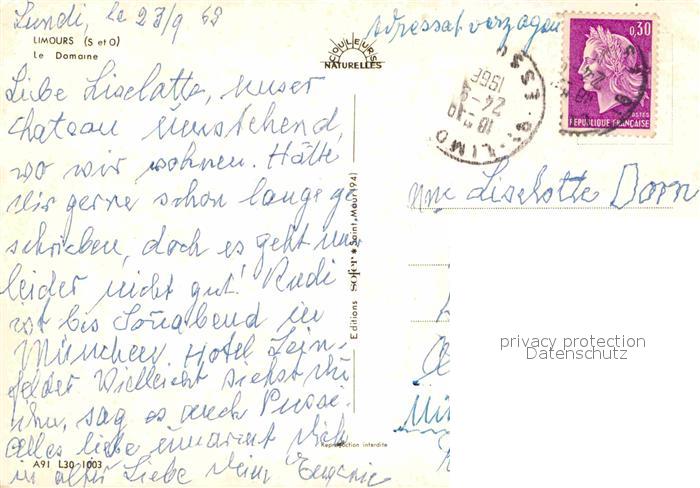 Lundi, le 23/9 68
LIMOURS (S et O)
Le Domaine
COULEURS
NATURELLES
Adressat verzogen
0,30
POSTES
REPUBLIQUE FRANÇAISE
18 H
24-9
1968
LIMOURS
Liebe Liselotte, unser
Chateau umstehend,
wo wir wohnen. Hätte
Dir gerne schon lange ge
schrieben, doch es geht mir
leider nicht gut! Rudi
ist bis Sonnabend in
München. Hotel Lein-
felder Vielleicht siehst Du
ihn, sag es auch Pusse.
Alles liebe umarmt Dich
in alter Liebe Dein
Mme Liselotte Dorn
Editions sofer * Saint, Maur (94)
Reproduction interdite
A91 L30-1003
privacy protection
Datenschutz